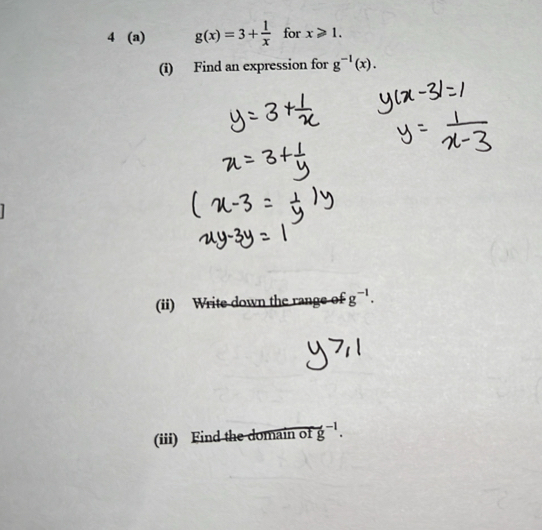 4 (a) g(x) = 3 + 1/x for x ⩾ 1.
(i) Find an expression for g⁻¹(x).
y = 3 + 1/x
x = 3 + 1/y
( x - 3 = 1/y ) y
xy - 3y = 1
y(x - 3) = 1
y = 1/(x - 3)
]
(ii) Write down the range of g⁻¹.
y ⩾ 1
(iii) Find the domain of g⁻¹.